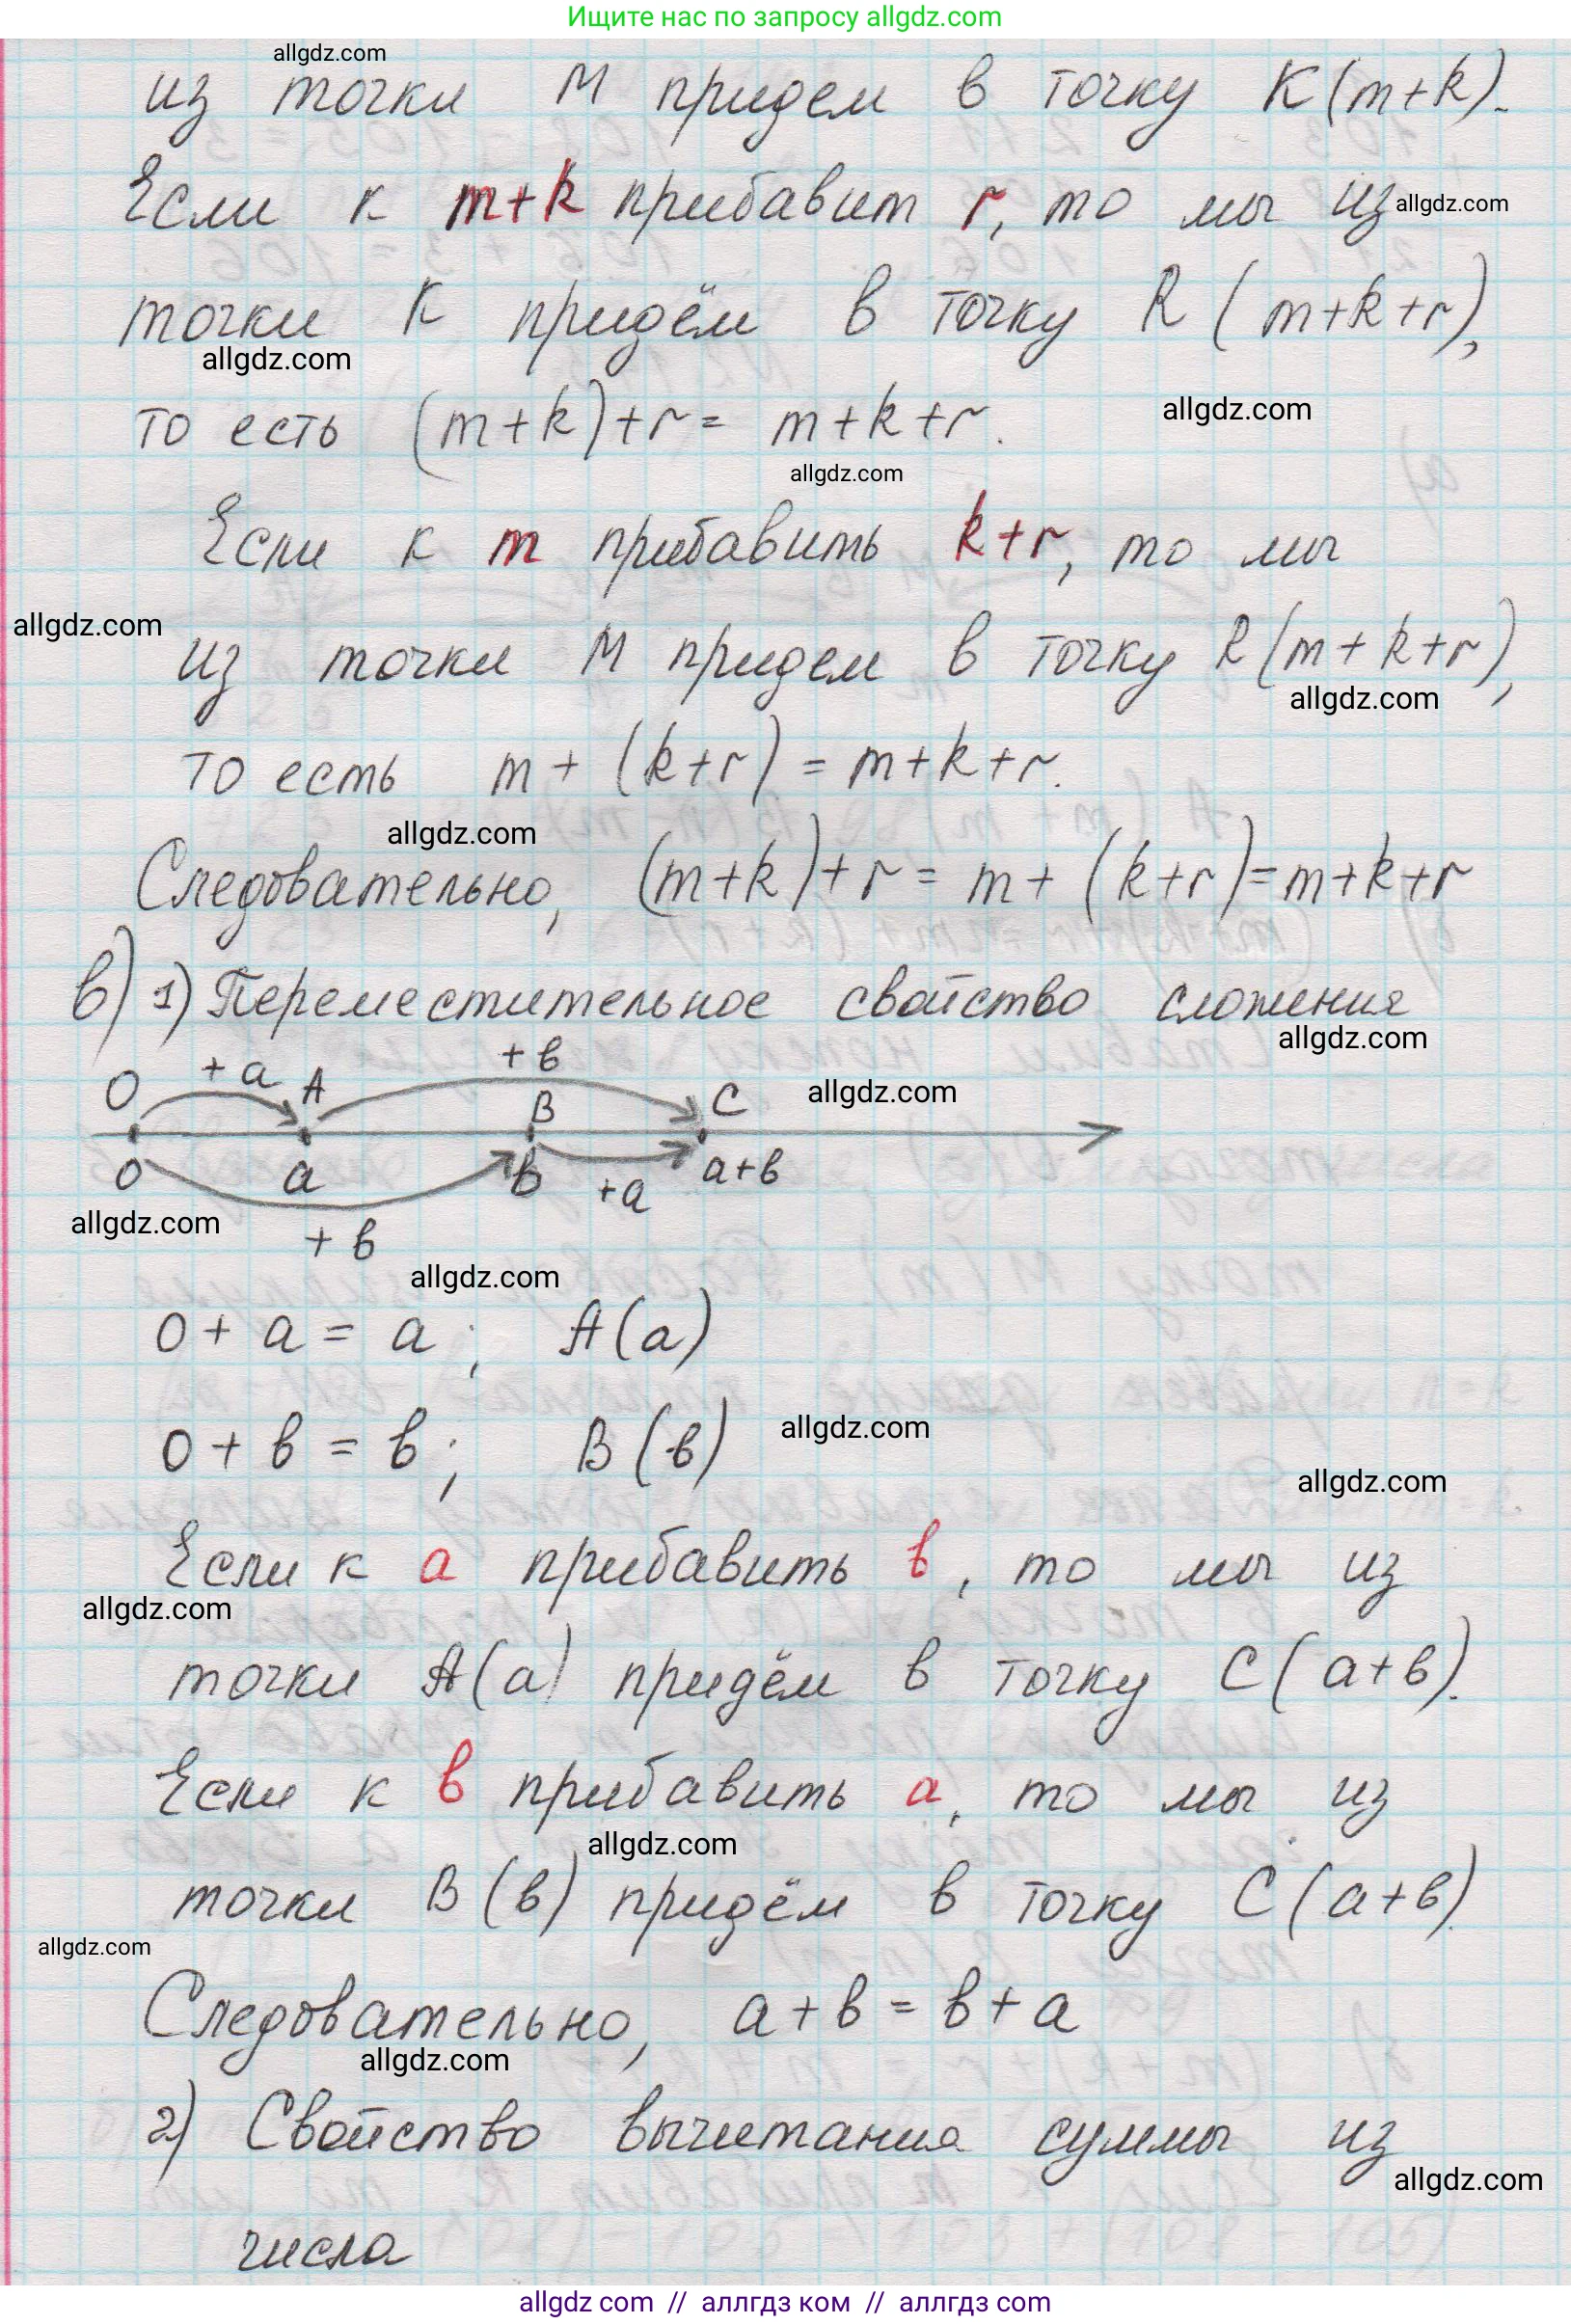 Ищите нас по запросу allgdz.com
allgdz.com
из точки М придем в точку K(m+k).
Если к m+k прибавит r, то мы из
allgdz.com
точки K придём в точку R (m+k+r),
allgdz.com
то есть (m+k)+r = m+k+r.
allgdz.com
allgdz.com
Если к m прибавить k+r, то мы
allgdz.com
из точки М придем в точку R(m+k+r),
allgdz.com
то есть m+(k+r) = m+k+r.
allgdz.com
Следовательно, (m+k)+r = m+(k+r)=m+k+r
в) 1) Переместительное свойство сложения
allgdz.com
+в
O +a A B C
allgdz.com
0 a в +a a+в
allgdz.com
+в
allgdz.com
0+a = a; A(a)
0+в = в; B(в)
allgdz.com
allgdz.com
Если к a прибавить в, то мы из
allgdz.com
точки A(a) придём в точку C(a+в).
Если к в прибавить a, то мы из
allgdz.com
точки B(в) придём в точку C(a+в).
allgdz.com
Следовательно, a+в = в+a
allgdz.com
2) Свойство вычитания суммы из
allgdz.com
числа
allgdz com // аллгдз ком // allgdz com